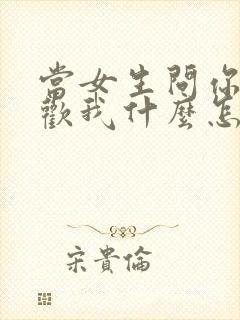 當女生問你
歡我什麼怎
宋貴倫